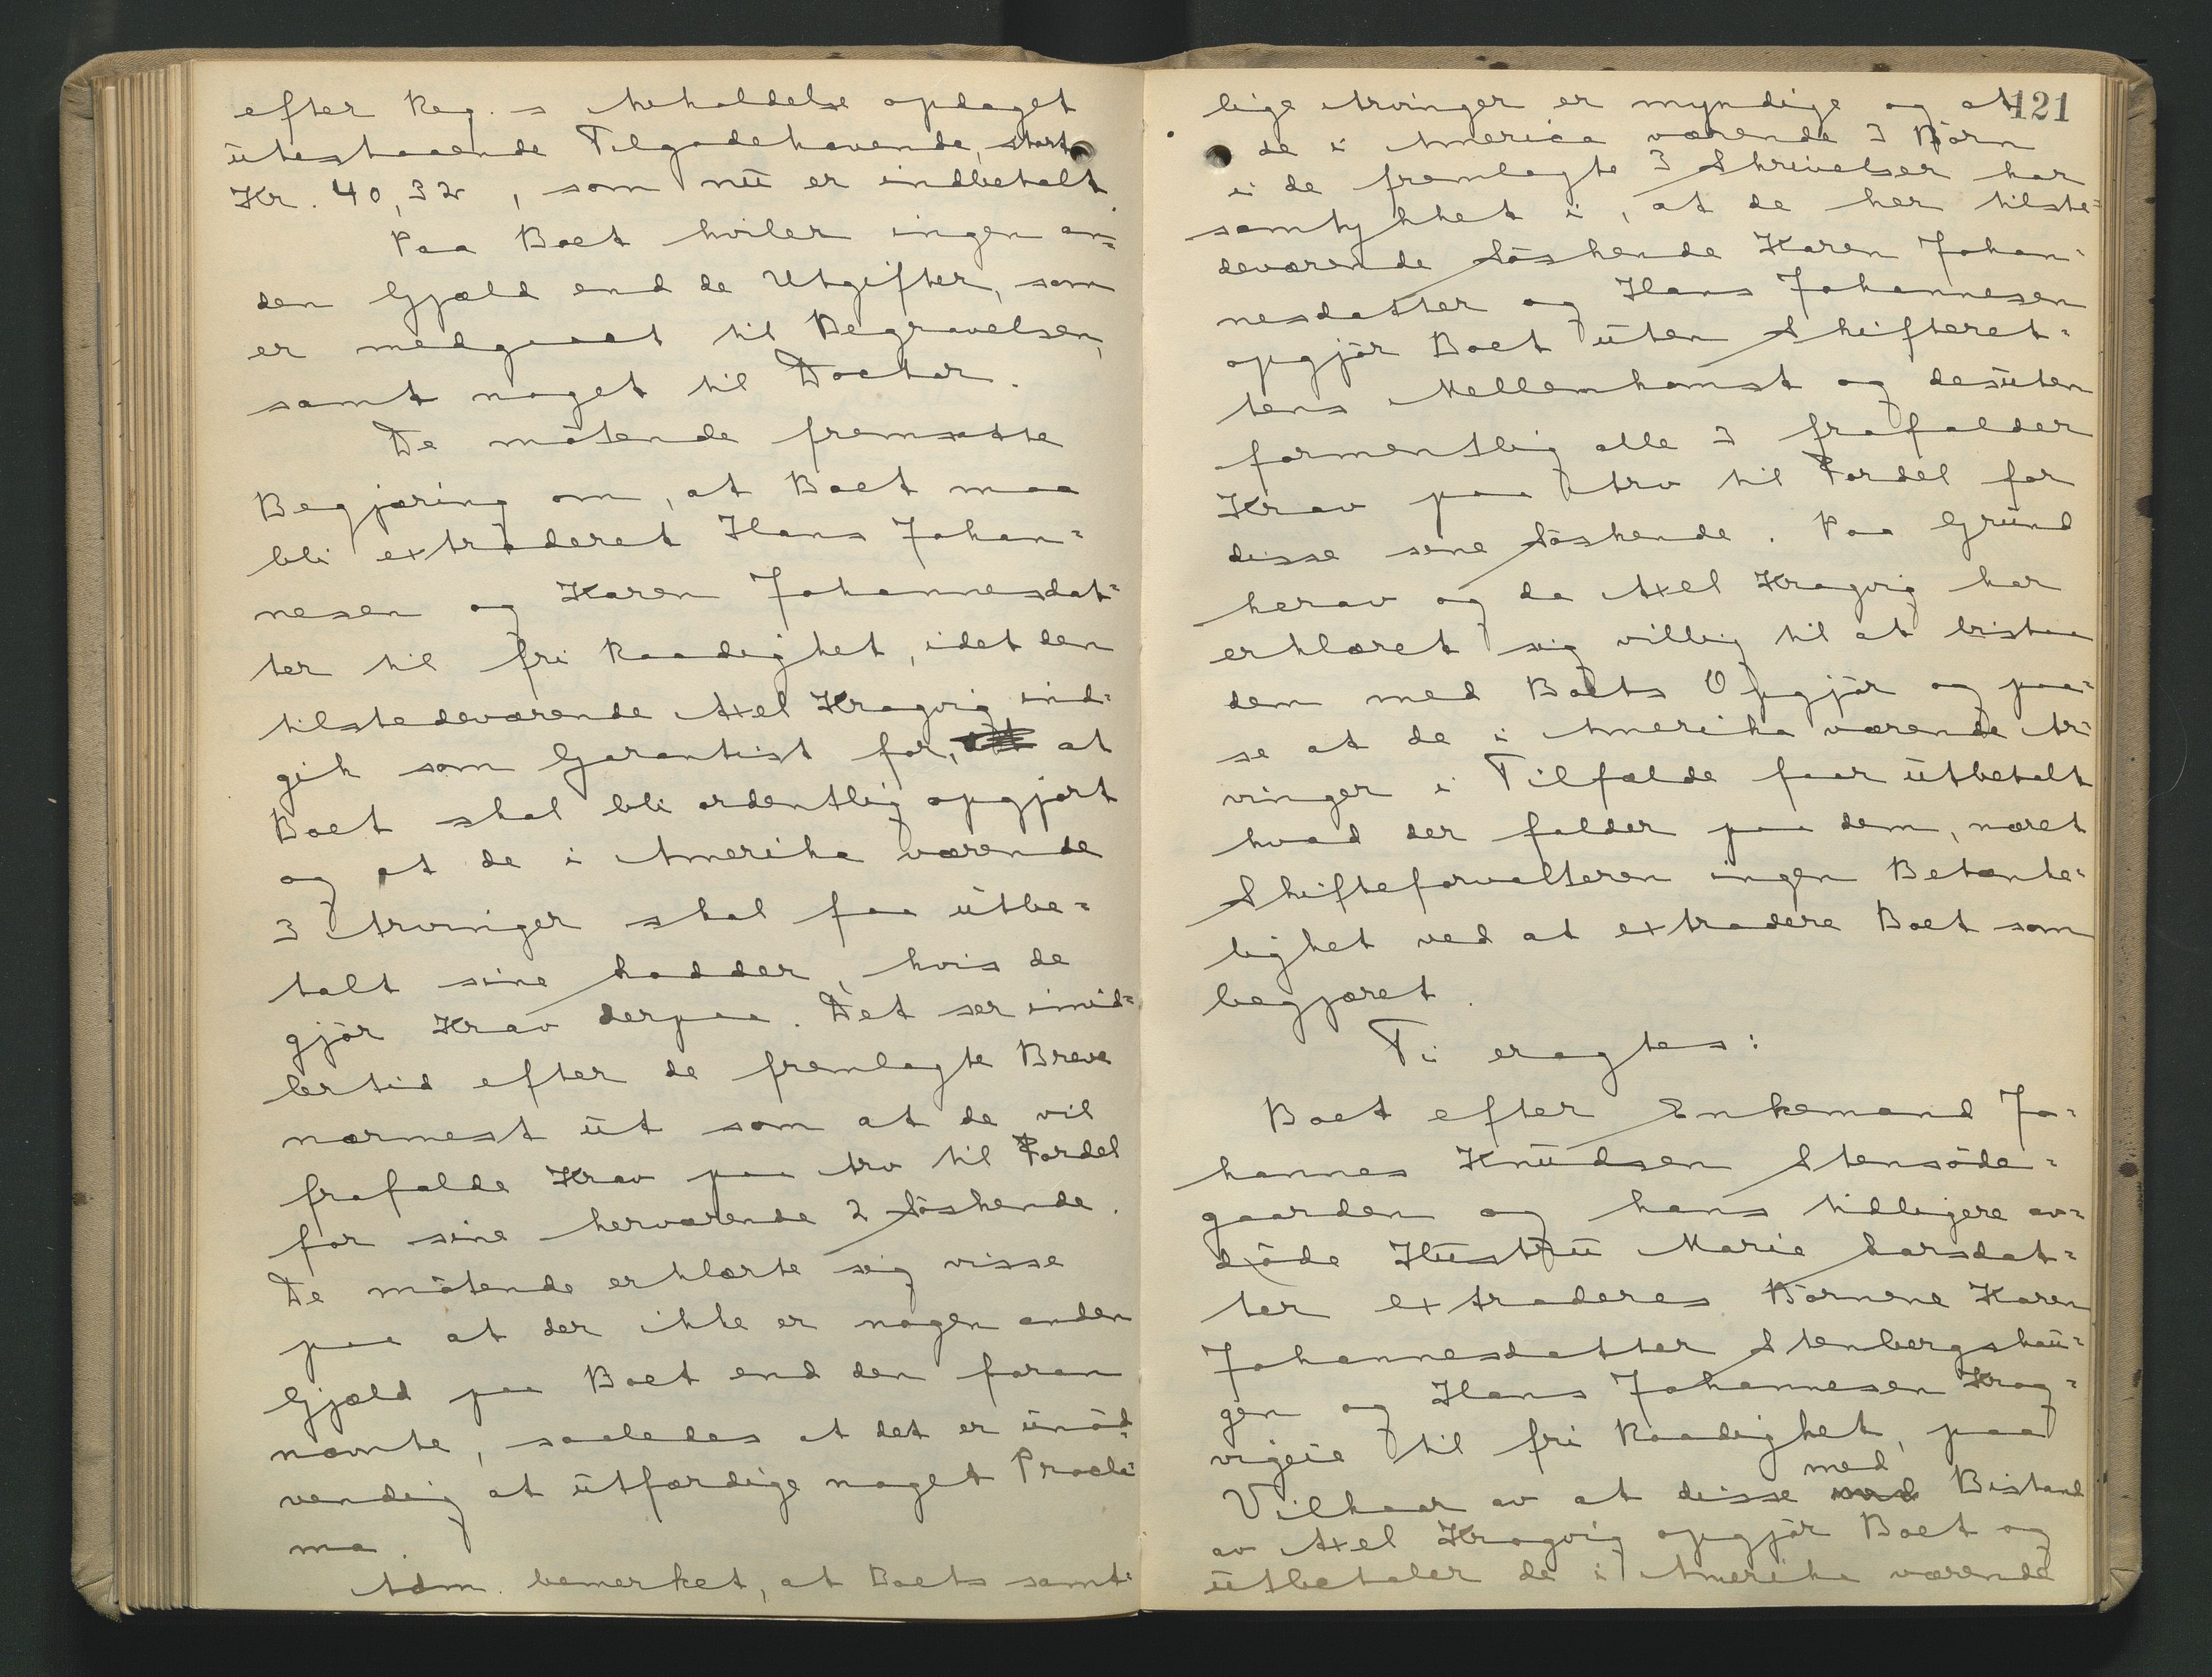 efter Reg. s beholdelse opdaget
ütestaaende Tilgodehavende, stort
Kr. 40,32, som nü er indbetalt.
Paa Boet hviler ingen an=
den Gjæld end de Utgifter, som
er medgaaet til Begravelsen,
samt noget til Doctor.
De mötende fremsatte
Begjæring om, at Boet maa
bli extraderet Hans Johan=
nesen og Karen Johannesdat=
ter til fri Raadighet, idet den
tilstedeværende Axel Kragvig ind=
gik som Garantist for, at
Boet skal bli ordentlig opgjort
og at de i Amerika værende
3 Arvinger skal faa ütbe=
talt sine Lodder, hvis de
gjör Krav derpaa. Det ser imid=
lertid efter de fremlagte Breve
nærmest üt som at de vil
frafalde Krav paa Arv til Fordel
for sine herværende 2 Söskende.
De mötende erklærte sig visse
paa at der ikke er nogen anden
Gjæld paa Boet end den foran
nævnte, saaledes at det er ünöd=
vendig at ütfærdige noget Procla=
ma.
Adm. bemerket, at Boets samt=
121
lige Arvinger er myndige og at
de i America værende 3 Börn
i de fremlagte 3 Skrivelser har
samtykket i, at de her tilste=
deværende Söskende Karen Johan=
nesdatter og Hans Johannesen
opgjör Boet üten Skifteret=
tens Mellemkomst og desüten
formentlig alle 3 frafalder
Krav paa Arv til Fordel for
disse sine Söskende. Paa Gründ
herav og da Axel Kragvig har
erklæret sig villig til at bistaa
dem med Boets Opgjör og paa=
se at de i Amerika værende Ar=
vinger i Tilfælde faar ütbetalt
hvad der falder paa dem, næret
Skifteforvalteren ingen Betænke=
lighet ved at extradere Boet som
begjæret.
Ti eragtes:
Boet efter Enkemand Jo=
hannes Knüdsen Stensöde=
gaarden og hans tidligere av=
döde Hüstrü Marie Larsdat=
ter extraderes Börnene Karen
Johannesdatter Stenbergshaü=
gen og Hans Johannesen Krag=
vigeie til fri Raadighet, paa
Vilkaar av at disse med Bistand
av Axel Kragvig opgjör Boet og
ütbetaler de i Amerika værende